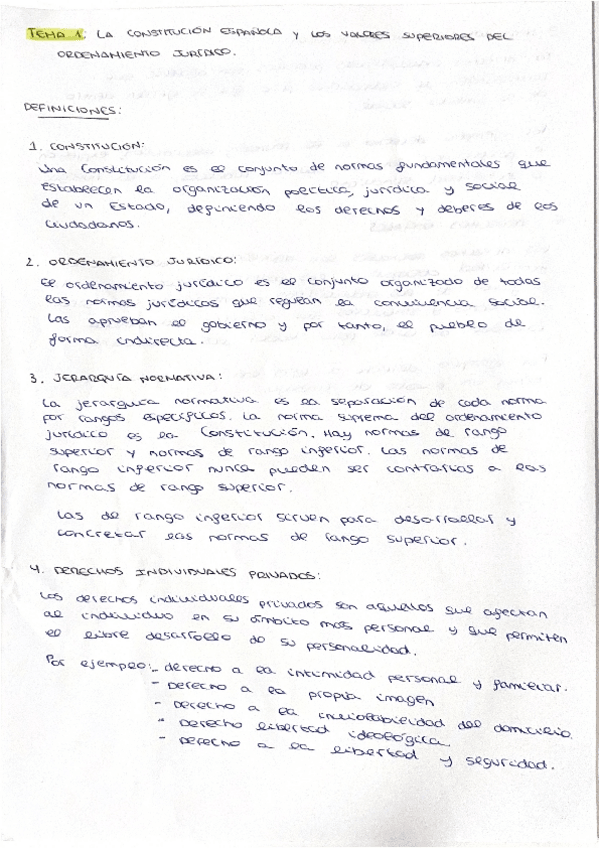 TEMA 1: LA CONSTITUCIÓN ESPAÑOLA Y LOS VALORES SUPERIORES DEL
ORDENAMIENTO JURÍDICO.
DEFINICIONES:
1. CONSTITUCIÓN:
Una Constitución es el conjunto de normas fundamentales que
establecen la organización política, jurídica y social
de un Estado, definiendo los derechos y deberes de los
ciudadanos.
2. ORDENAMIENTO JURÍDICO:
El ordenamiento jurídico es el conjunto organizado de todas
las normas jurídicas que regulan la convivencia social.
Las aprueban el gobierno y por tanto, el pueblo de
forma indirecta.
3. JERARQUÍA NORMATIVA:
La jerarquía normativa es la separación de cada norma
por rangos específicos. La norma suprema del ordenamiento
jurídico es la Constitución. Hay normas de rango
superior y normas de rango inferior. Las normas de
rango inferior nunca pueden ser contrarias a las
normas de rango superior.
Las de rango inferior sirven para desarrollar y
concretar las normas de rango superior.
4. DERECHOS INDIVIDUALES PRIVADOS:
Los derechos individuales privados son aquellos que afectan
al individuo en su ámbito más personal y que permiten
el libre desarrollo de su personalidad.
Por ejemplo: - derecho a la intimidad personal y familiar.
- Derecho a la propia imagen
- Derecho a la inviolabilidad del domicilio.
- Derecho libertad ideológica
- Derecho a la libertad y seguridad.